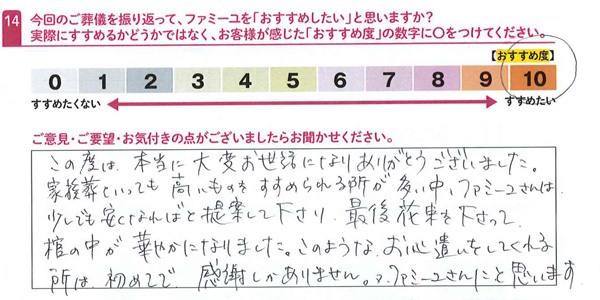 14 今回のご葬儀を振り返って、ファミーユを「おすすめしたい」と思いますか?
実際にすすめるかどうかではなく、お客様が感じた「おすすめ度」の数字に○をつけてください。
【おすすめ度】
0 1 2 3 4 5 6 7 8 9 10
すすめたくない すすめたい
ご意見・ご要望・お気付きの点がございましたらお聞かせください。
この度は、本当に大変お世話になりありがとうございました。
家族葬といっても高いものをすすめられる所が多い中、ファミーユさんは、
少しでも安くなればと提案して下さり、最後花束を下さって、
棺の中が華やかになりました。このような、お心遣いをしてくれる
所は、初めてで、感謝しかありません。又、ファミーユさんにと思います